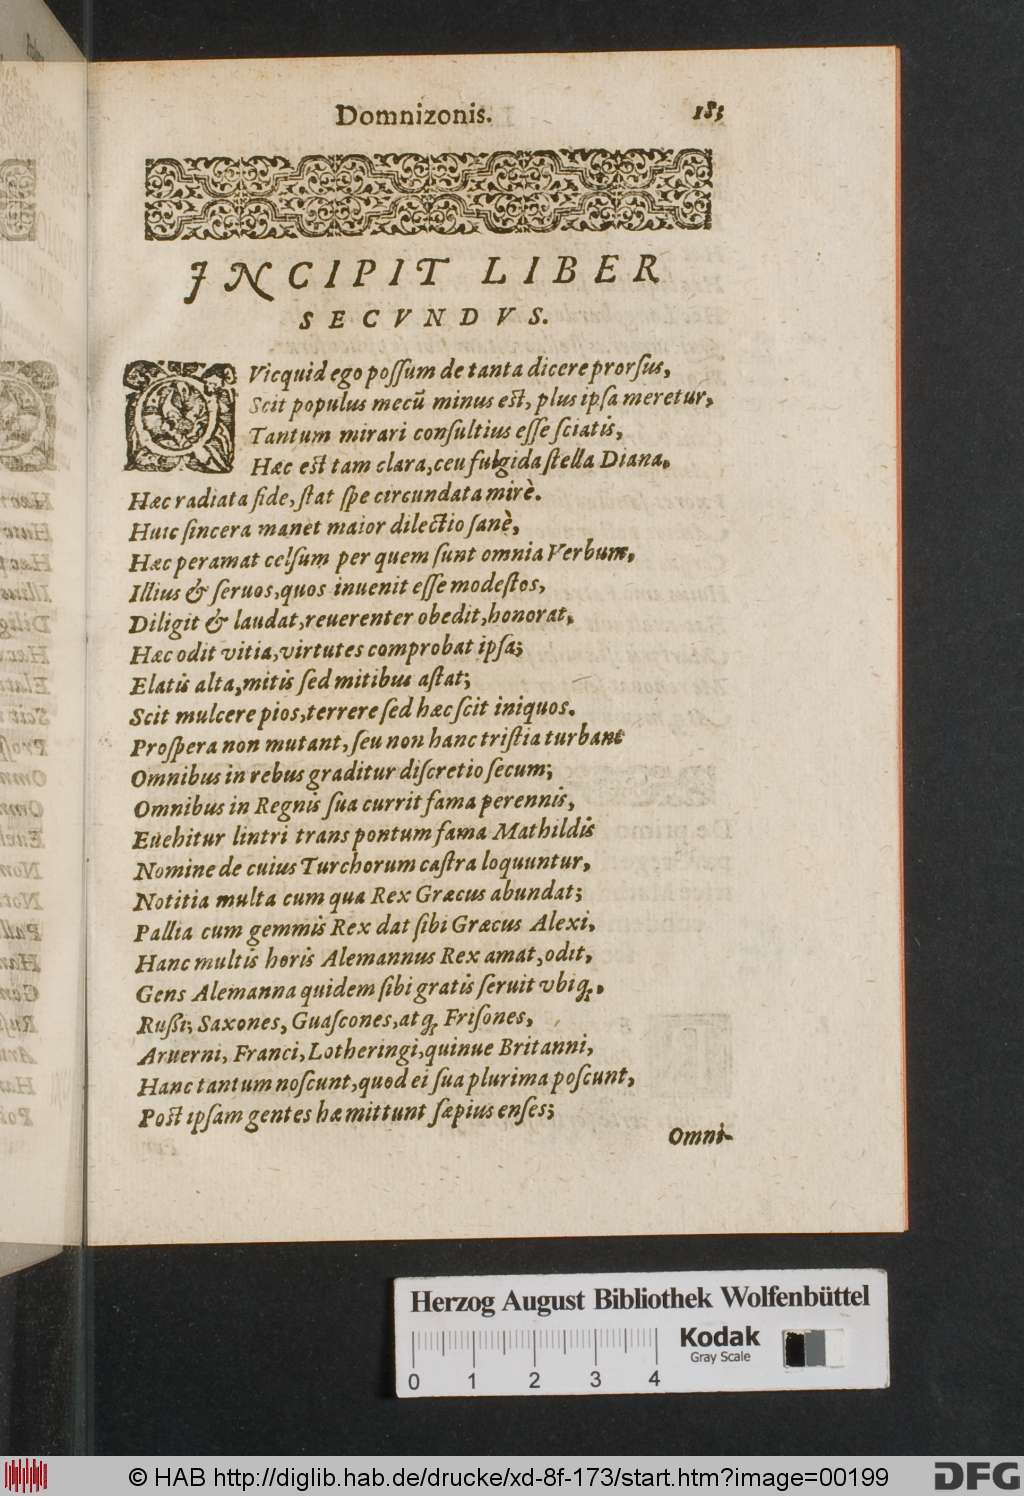 Domnizonis. 183
INCIPIT LIBER
SECVNDVS.
QVicquid ego poſſum de tanta dicere prorſus,
Scit populus mecũ minus eſt, plus ipſa meretur,
Tantum mirari conſultius eſſe ſciatis,
Hæc eſt tam clara, ceu fulgida ſtella Diana.
Hæc radiata fide, ſtat ſpe circundata mirè.
Huic ſincera manet maior dilectio ſanè,
Hæc peramat celſum per quem ſunt omnia Verbum,
Illius & ſeruos, quos inuenit eſſe modeſtos,
Diligit & laudat, reuerenter obedit, honorat,
Hæc odit vitia, virtutes comprobat ipſa;
Elatis alta, mitis ſed mitibus aſtat;
Scit mulcere pios, terrere ſed hæc ſcit iniquos.
Proſpera non mutant, ſeu non hanc triſtia turbant
Omnibus in rebus graditur diſcretio ſecum;
Omnibus in Regnis ſua currit fama perennis,
Euehitur lintri trans pontum fama Mathildis
Nomine de cuius Turchorum caſtra loquuntur,
Notitia multa cum qua Rex Græcus abundat;
Pallia cum gemmis Rex dat ſibi Græcus Alexi,
Hanc multis horis Alemannus Rex amat, odit,
Gens Alemanna quidem ſibi gratis ſeruit vbiq;.
Ruſſi; Saxones, Guaſcones, atq; Friſones,
Aruerni, Franci, Lotheringi, quinue Britanni,
Hanc tantum noſcunt, quod ei ſua plurima poſcunt,
Poſt ipſam gentes hæ mittunt ſæpius enſes;
Omni-
Herzog August Bibliothek Wolfenbüttel
Kodak
Gray Scale
0 1 2 3 4
© HAB http://diglib.hab.de/drucke/xd-8f-173/start.htm?image=00199
DFG